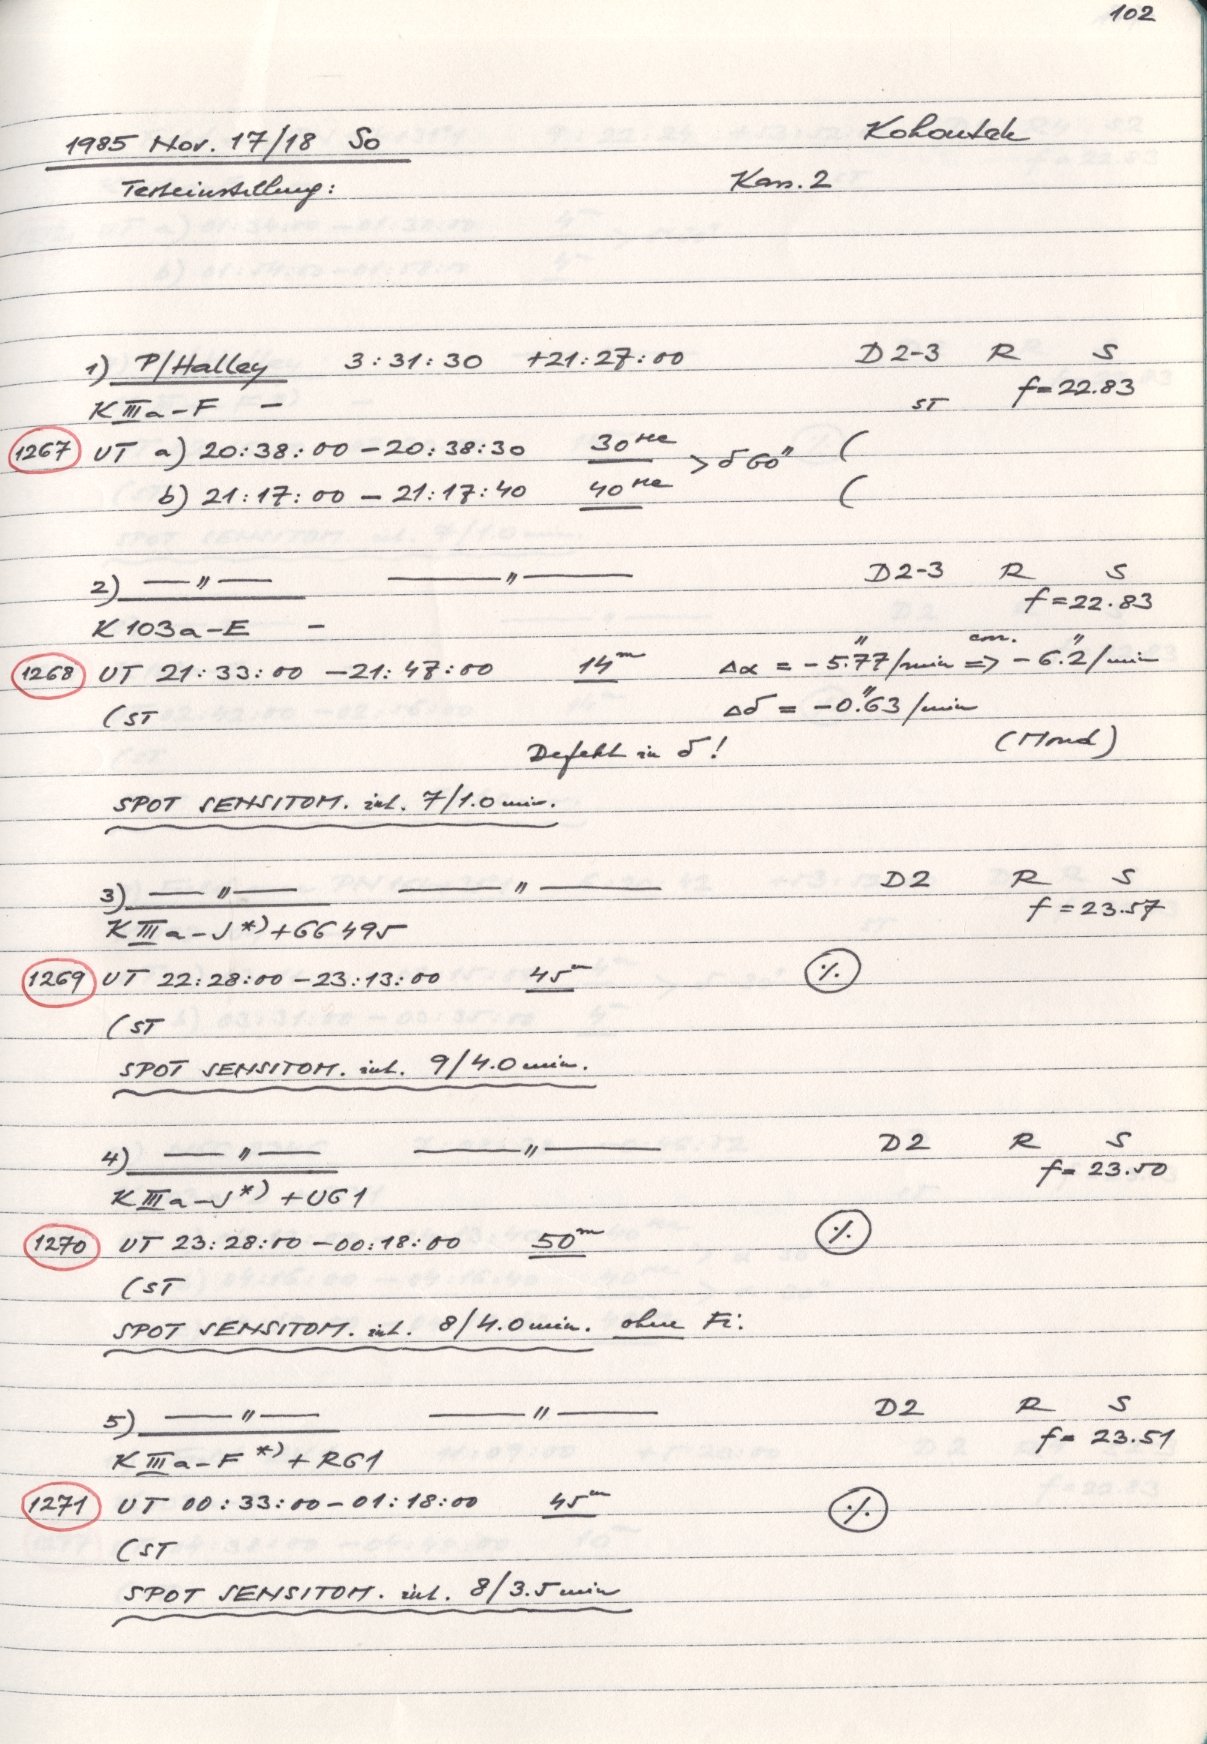 102
1985 Nov. 17/18 So Kohoutek
Testeinstellung: Kass. 2
1) P/Halley 3:31:30 +21:27:00 D2-3 R S
KIIIa-F - ST f=22.83
1267 UT a) 20:38:00 - 20:38:30 30 sec > δ 60" (
b) 21:17:00 - 21:17:40 40 sec (
2) — " — — " — D2-3 R S
f=22.83
K103a-E -
1268 UT 21:33:00 - 21:47:00 14m Δα = -5."77/min => corr. -6."2/min
(ST Δδ = -0."63/min
Defekt in δ! (Mond)
SPOT SENSITOM. int. 7/1.0 min.
3) — " — — " — D2 R S
KIIIa-J *) + GG495 f=23.57
1269 UT 22:28:00 - 23:13:00 45m ./.
(ST
SPOT SENSITOM. int. 9/4.0 min.
4) — " — — " — D2 R S
KIIIa-J *) + UG1 f=23.50
1270 UT 23:28:00 - 00:18:00 50m ./.
(ST
SPOT SENSITOM. int. 8/4.0 min. ohne Fi.
5) — " — — " — D2 R S
KIIIa-F *) + RG1 f=23.51
1271 UT 00:33:00 - 01:18:00 45m ./.
(ST
SPOT SENSITOM. int. 8/3.5 min